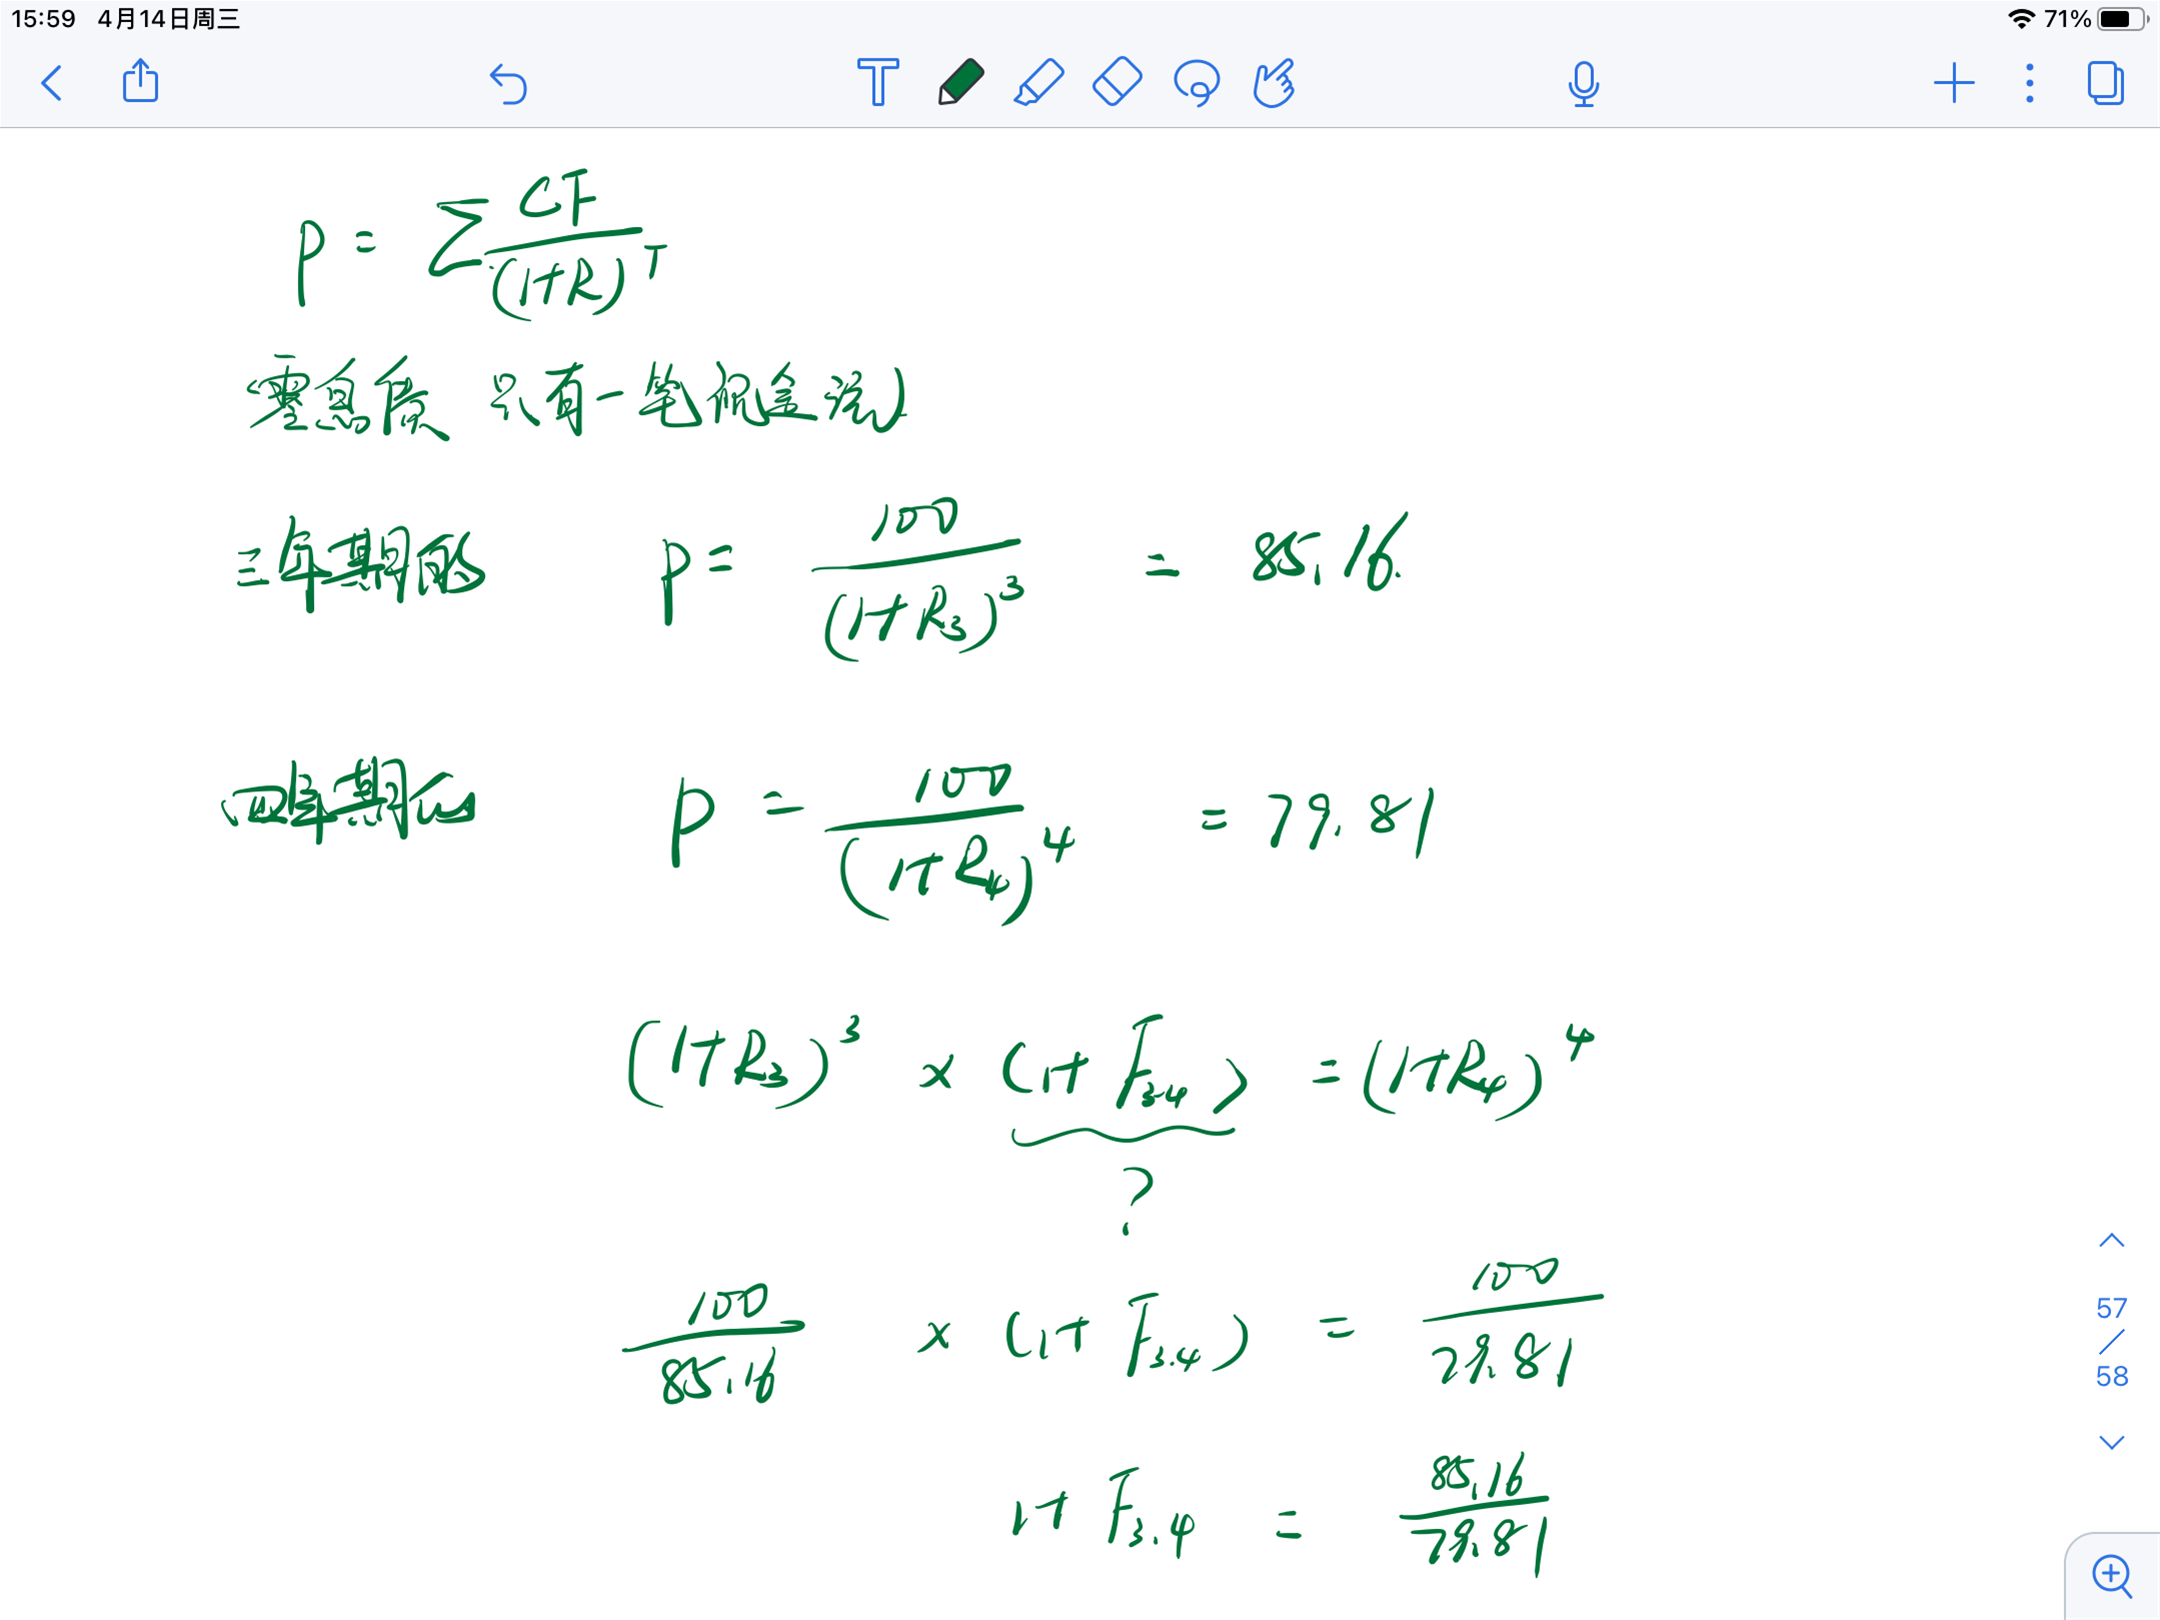 15:59 4月14日周三 71%
T
P = Σ CF / (1+R)^T
零息债 只有一笔现金流)
三年期的 P = 100 / (1+R₃)³ = 85.16.
四年期的 P = 100 / (1+R₄)⁴ = 79.81
(1+R₃)³ × (1+F₃.₄) = (1+R₄)⁴
?
100 / 85.16 × (1+F₃.₄) = 100 / 79.81
1+F₃.₄ = 85.16 / 79.81
57
/
58